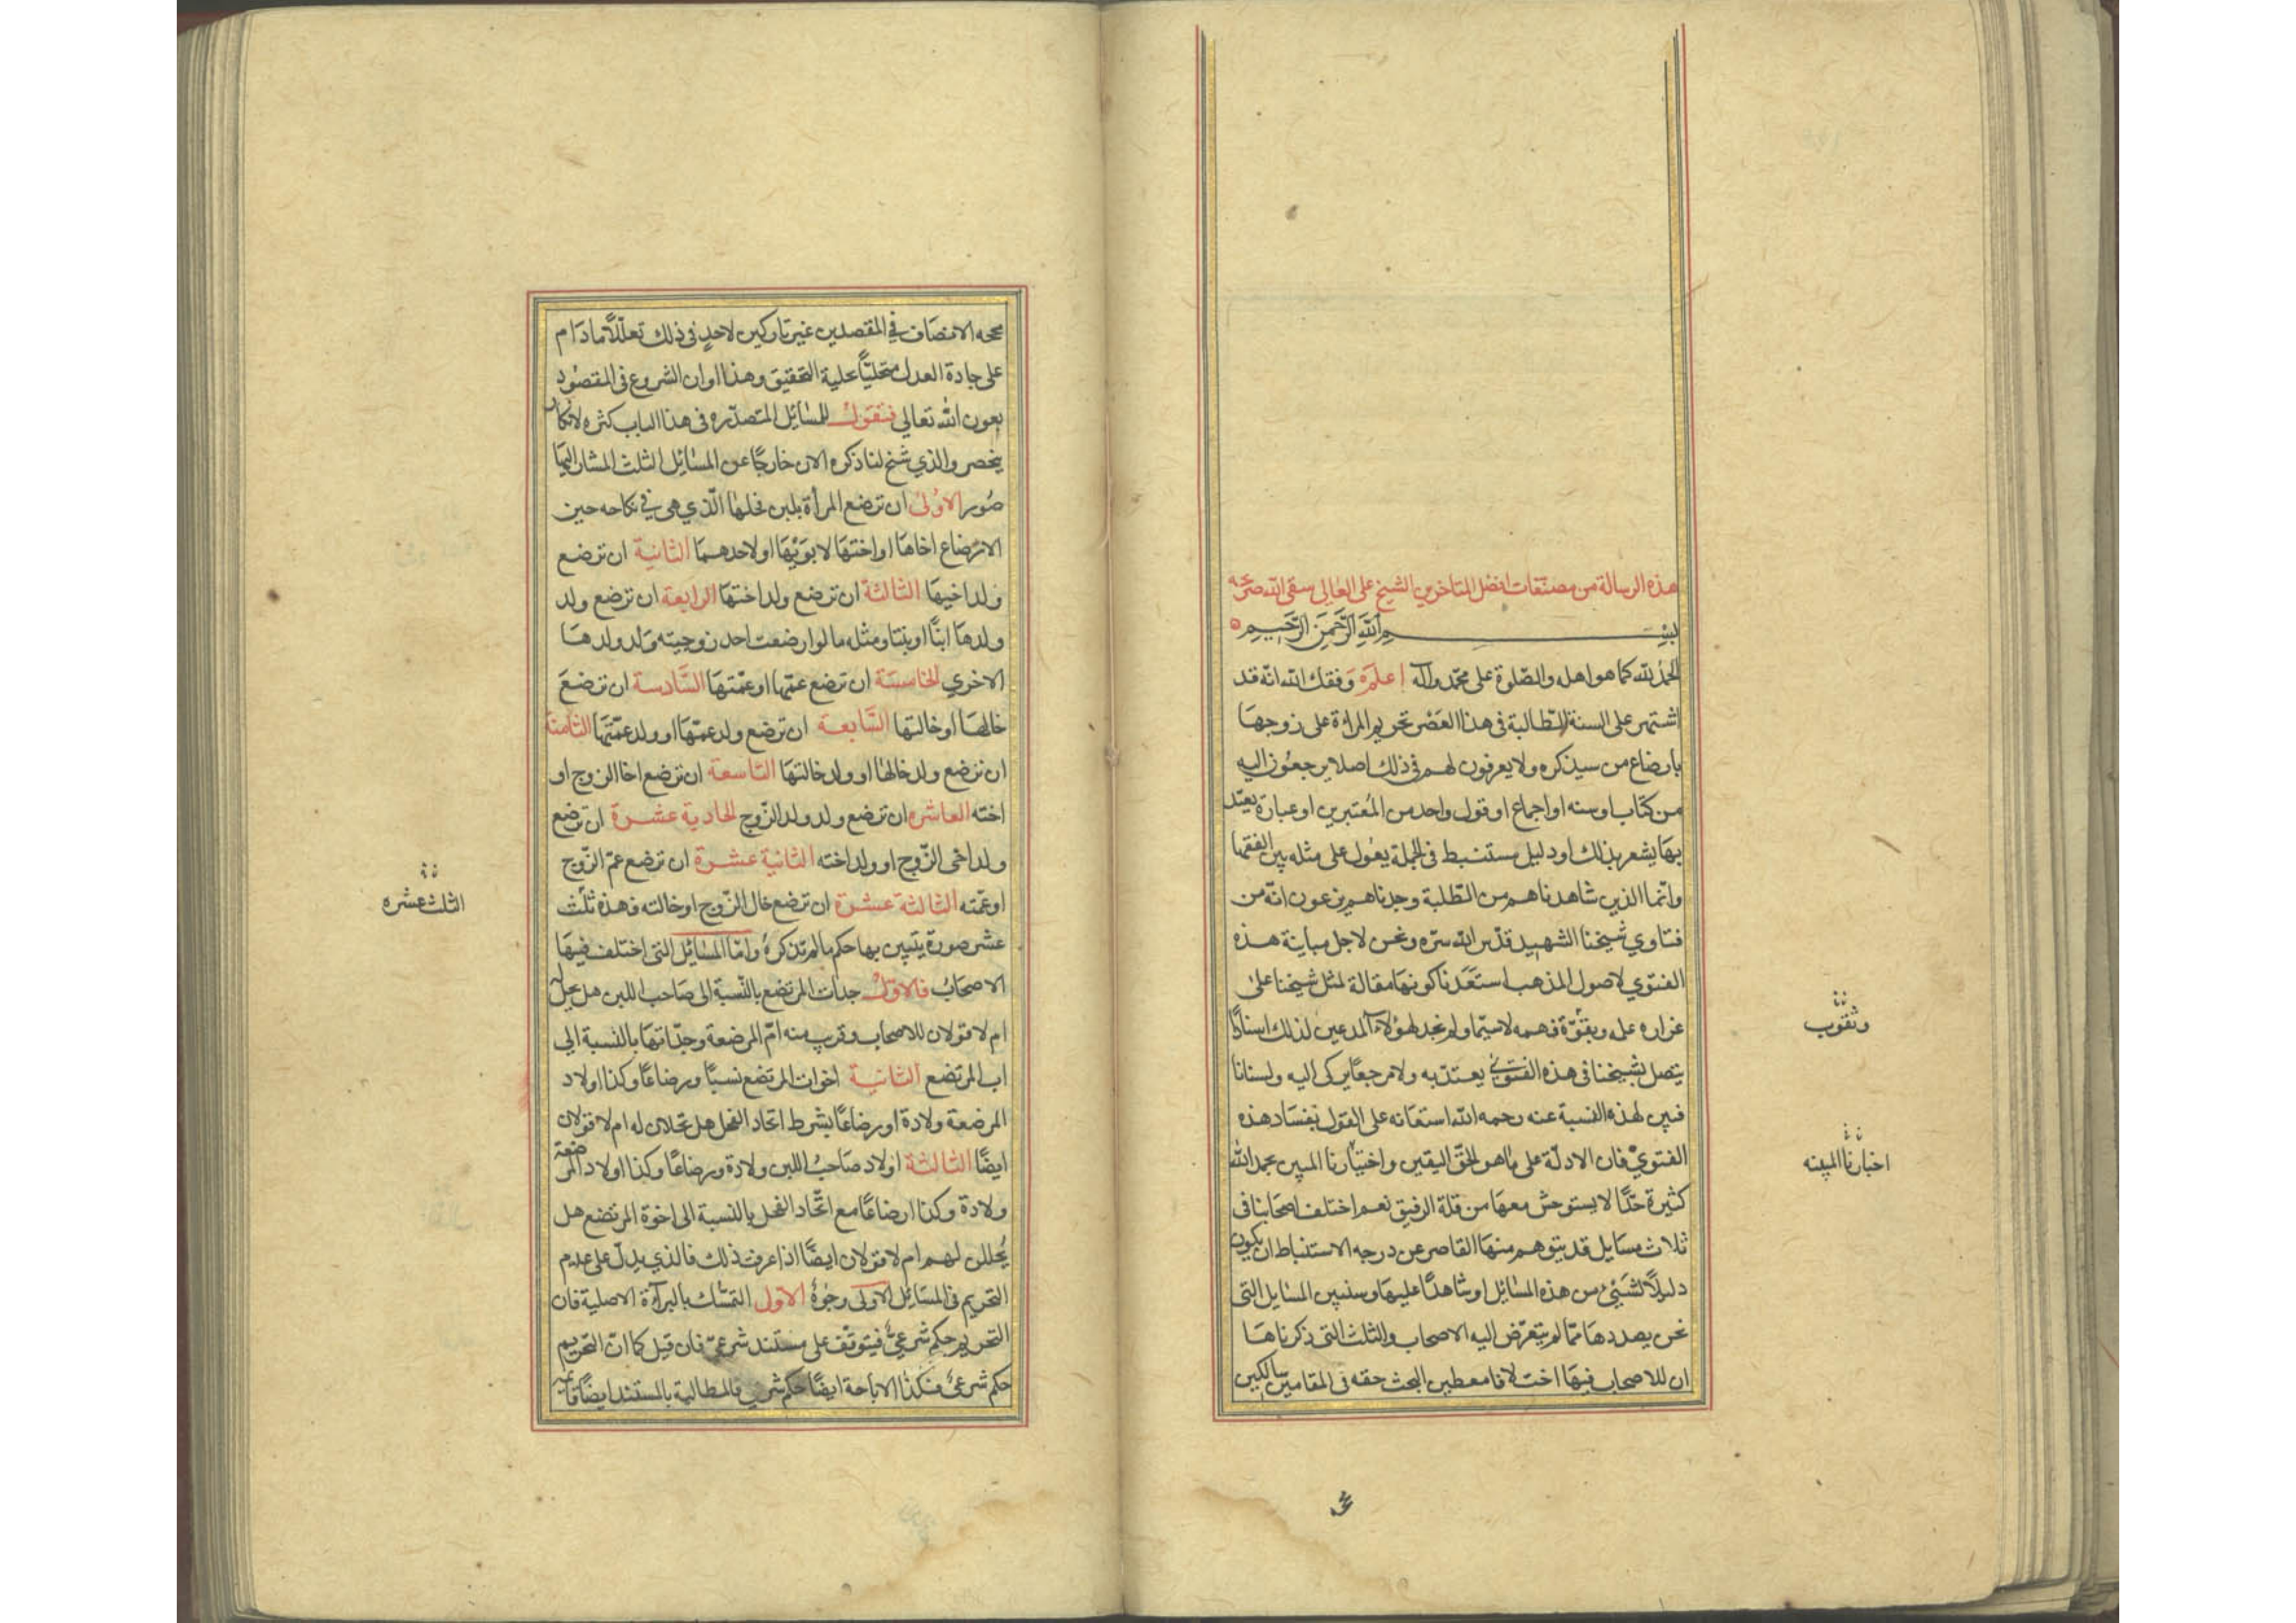 هذه الرسالة من مصنفات افضل المتاخرين الشيخ على العالى سقى الله ضريحه
بسم الله الرحمن الرحيم
الحمد لله كما هو اهله والصلوة على محمد وآله إعلم وفقك الله انه قد
اشتهر على السنة الطلبة فى هذا العصر تحريم المراة على زوجها
بارضاع من سيذكره ولا يعرفون لهم فى ذلك اصلا يرجعون اليه
من كتاب او سنه او اجماع او قول واحد من المعتبرين او عبارة يعتد
بها يشعر بذلك او دليل مستنبط فى الجملة يعول على مثله بين الفقها
وانما الذين شاهدناهم من الطلبة وجدناهم يزعمون انه من
فتاوي شيخنا الشهيد قدس الله سره ونحن لاجل مباينة هذه
الفتوي لاصول المذهب استبعدنا كونها مقالة لمثل شيخنا على
غزاره علمه وبقوة فهمه لاسيما ولم نجد لهؤلاء المدعين لذلك اسنادا
يتصل بشيخنا فى هذه الفتوى يعتد به ولا مرجعا يركن اليه ولسنا نا
فين لهذه النسبة عنه رحمه الله استعانه على القول بفساد هذه
الفتوي فان الادلة على ما هو الحق اليقين واختيارنا المبين بحمد الله
كثيرة جدا لا يستوحش معها من قلة الرفيق نعم اختلف اصحابنا فى
ثلاث مسايل قد يتوهم منها القاصر عن درجه الاستنباط ان يكون
دليلا لشيئ من هذه المسائل او شاهدا عليها وسنبين المسايل التى
نحن بصددها مما لم يتعرض اليه الاصحاب والثلث التى ذكرناها
ان للاصحاب فيها اختلافا معطين البحث حقه فى المقامين سالكين
وثقوب
اخبارنا المبينه
محجه الانصاف في المقصدين غير تاركين لاحد فى ذلك تعللا ما دام
على جادة العدل متحليا بحلية التحقيق وهذا اوان الشروع فى المقصود
بعون الله تعالي فنقول للمسائل المتصدره فى هذا الباب كثره لا تكاد
ينحصر والذي سنح لنا ذكره الان خارجا عن المسائل الثلث المشار اليها
صور الاولى ان ترضع المرأة بلبن فحلها الذي هى في نكاحه حين
الارضاع اخاها او اختها لابويها او لاحدهما الثانية ان ترضع
ولد اخيها الثالثة ان ترضع ولد اختها الرابعة ان ترضع ولد
ولدها ابنا او بنتا ومثله ما لو ارضعت احد زوجيته ولد ولدها
الاخري الخامسة ان ترضع عمها او عمتها السادسة ان ترضع
خالها او خالتها السابعة ان ترضع ولد عمها او ولد عمتها الثامنة
ان ترضع ولد خالها او ولد خالتها التاسعة ان ترضع اخا الزوج او
اخته العاشره ان ترضع ولد ولد الزوج الحادية عشرة ان ترضع
ولد اخى الزوج او ولد اخته الثانية عشرة ان ترضع عم الزوج
او عمته الثالثة عشرة ان ترضع خال الزوج او خالته فهذه ثلث
عشر صورة يتبين بها حكم ما لم تذكره واما المسائل التى اختلف فيها
الاصحاب فالاول جدات المرتضع بالنسبة الى صاحب اللبن هل يحل له
ام لا قولان للاصحاب وقريب منه ام المرضعة وجداتها بالنسبة الي
اب المرتضع الثانية اخوات المرتضع نسبا ورضاعا وكذا اولاد
المرضعة ولادة او رضاعا بشرط اتحاد الفحل هل تحلان له ام لا قولان
ايضا الثالثة اولاد صاحب اللبن ولادة ورضاعا وكذا اولاد المرضعة
ولادة وكذا ارضاعا مع اتحاد الفحل بالنسبة الى اخوة المرتضع هل
يحللن لهم ام لا قولان ايضا اذا عرفت ذلك فالذي يدل على عدم
التحريم فى المسائل الاولى وجوه الاول التمسك بالبرآءة الاصلية فان
التحريم حكم شرعي فيتوقف على مستند شرعي فان قيل كما ان التحريم
حكم شرعي فكذا الاباحة ايضا حكم شرعي فالمطالبة بالمستند ايضا
الثلث عشره